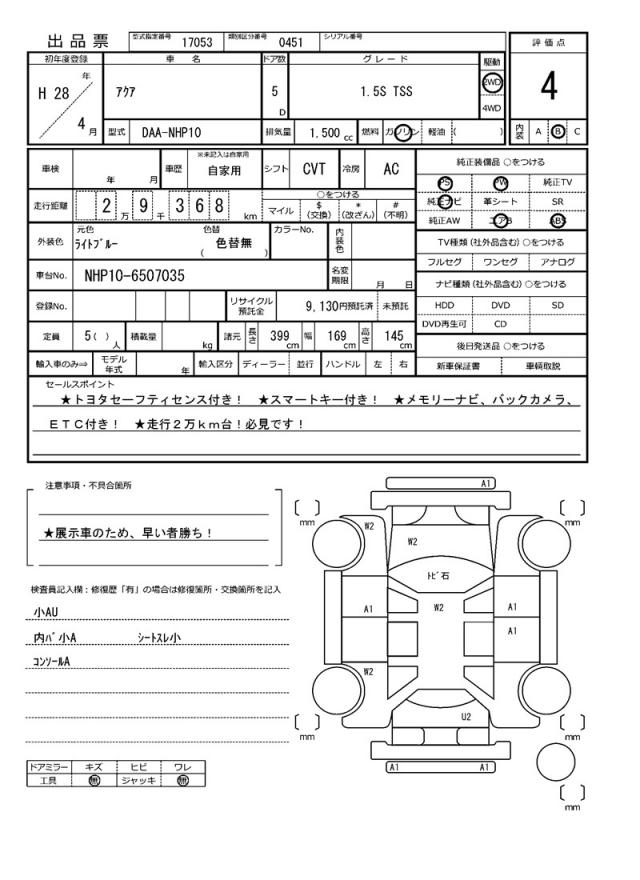 出品票 型式指定番号 17053 類別区分番号 0451 シリアル番号
評価点
4
内装 A B C
初年度登録 車名 ドア数 グレード 駆動
H 28 年 4 月
アクア
5 D
1.5S TSS
2WD
4WD
型式 DAA-NHP10 排気量 1.500 cc 燃料 ガソリン 軽油 ( )
車検 年 月 車歴 ※未記入は自家用 自家用 シフト CVT 冷房 AC
走行距離 2 万 9 千 3 6 8 km
○をつける
マイル $ (交換) * (改ざん) # (不明)
外装色 元色 ライトブルー 色替 ( 色替無 ) カラーNo. 内装色
車台No. NHP10-6507035 名変期限 月 日
登録No. リサイクル預託金 9,130円預託済 未預託
定員 5( ) 人 積載量 kg 諸元 長さ 399 cm 幅 169 cm 高さ 145 cm
輸入車のみ⇒ モデル年式 年 輸入区分 ディーラー 並行 ハンドル 左 右
純正装備品 ○をつける
PS PW 純正TV
純正ナビ 革シート SR
純正AW エアB ABS
TV種類(社外品含む)○をつける
フルセグ ワンセグ アナログ
ナビ種類(社外品含む)○をつける
HDD DVD SD
DVD再生可 CD
後日発送品 ○をつける
新車保証書 車輌取説
セールスポイント
★トヨタセーフティセンス付き! ★スマートキー付き! ★メモリーナビ、バックカメラ、
ETC付き! ★走行2万km台!必見です!
注意事項・不具合箇所
★展示車のため、早い者勝ち!
検査員記入欄:修復歴「有」の場合は修復箇所・交換箇所を記入
小AU
内バ小A シートスレ小
コンソールA
ドアミラー キズ ヒビ ワレ
工具 無 ジャッキ 無
A1
mm mm
W2
W2
トビ石
W2
A1 A1
A1
W2
U2
mm mm
A1 A1
mm